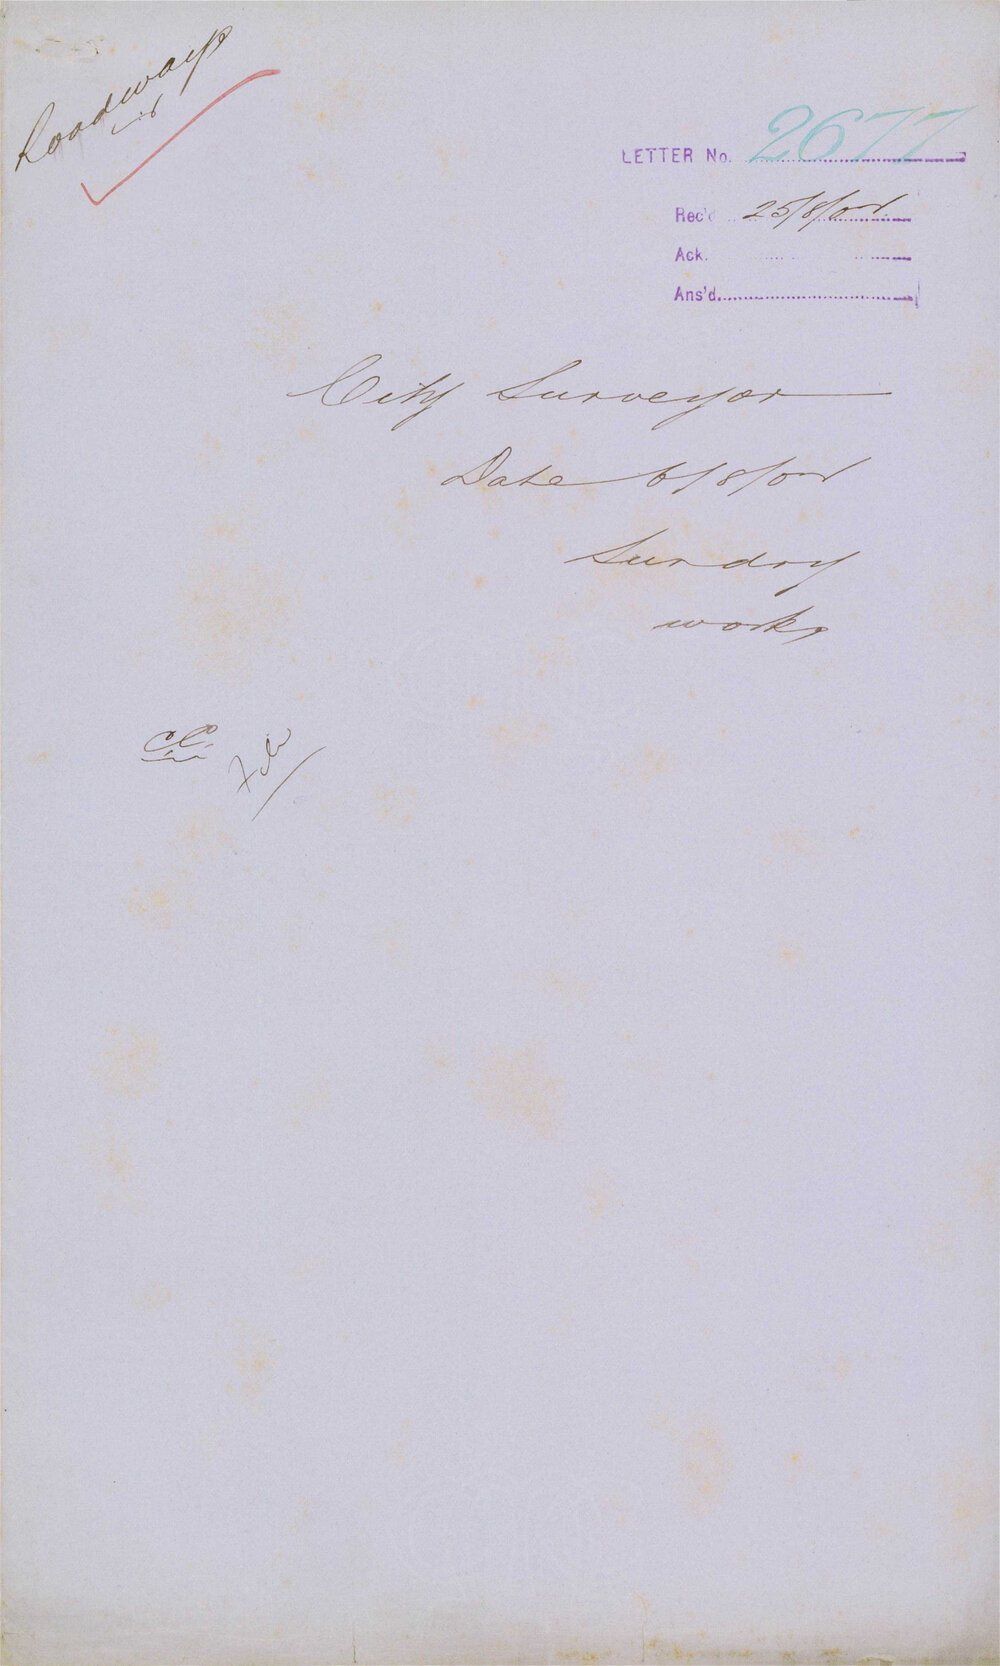 Roadways
LETTER No. 2677
Rec'd 25/8/04
Ack.
Ans'd.
City Surveyor
Date 6/8/04
Sundry
works
File